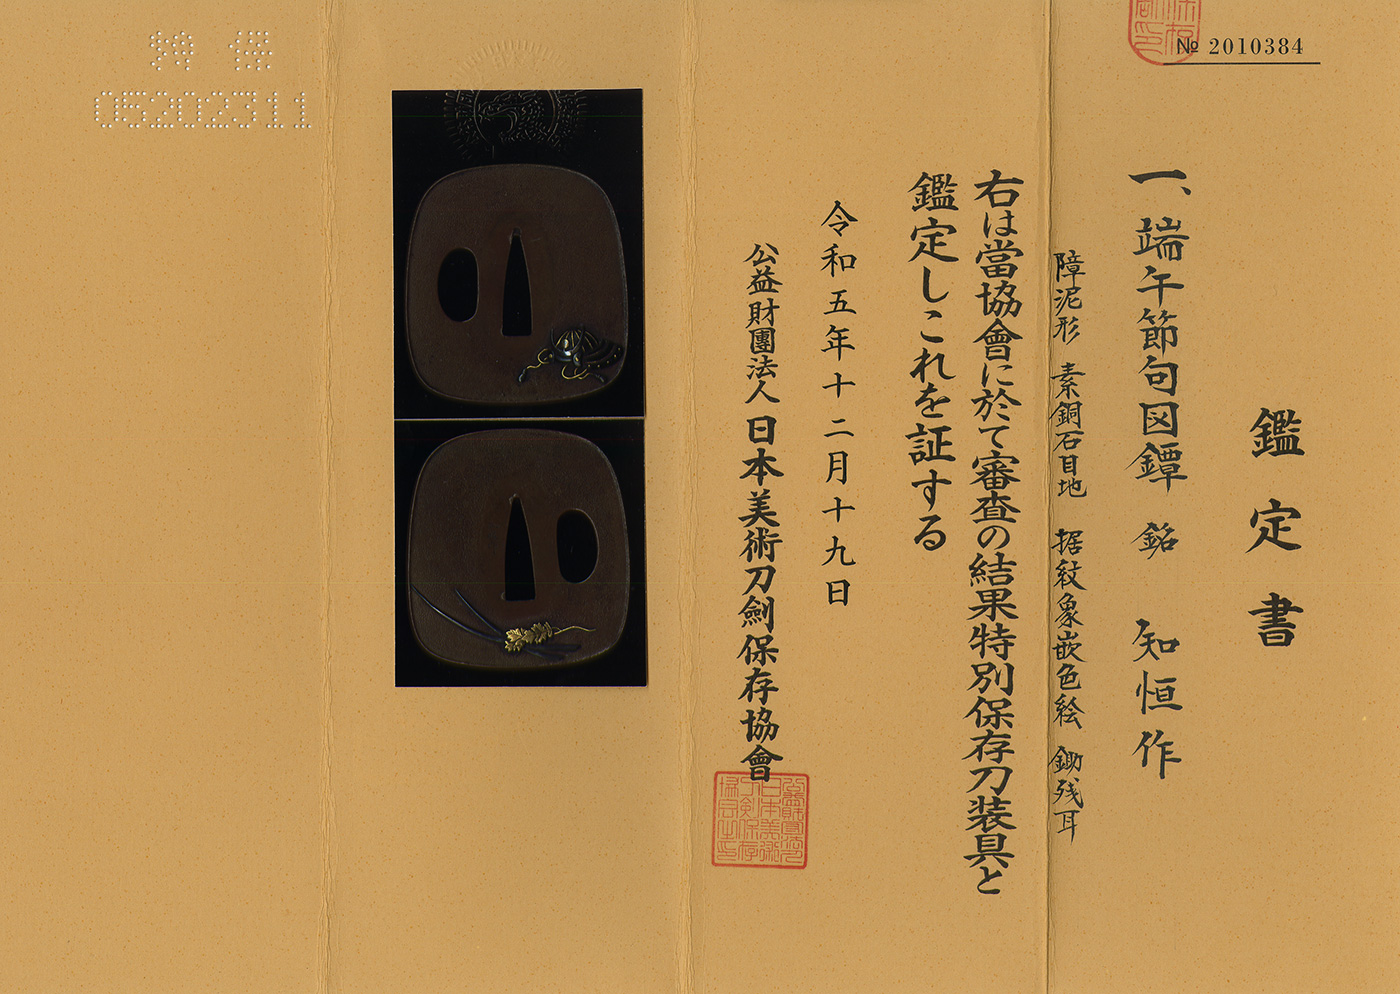 № 2010384
鑑定書
一、端午節句図鐔 銘 知恒作
障泥形 素銅石目地 据紋象嵌色絵 鋤残耳
右は當協會に於て審査の結果特別保存刀装具と
鑑定しこれを証する
令和五年十二月十九日
公益財團法人 日本美術刀劍保存協會
05202311